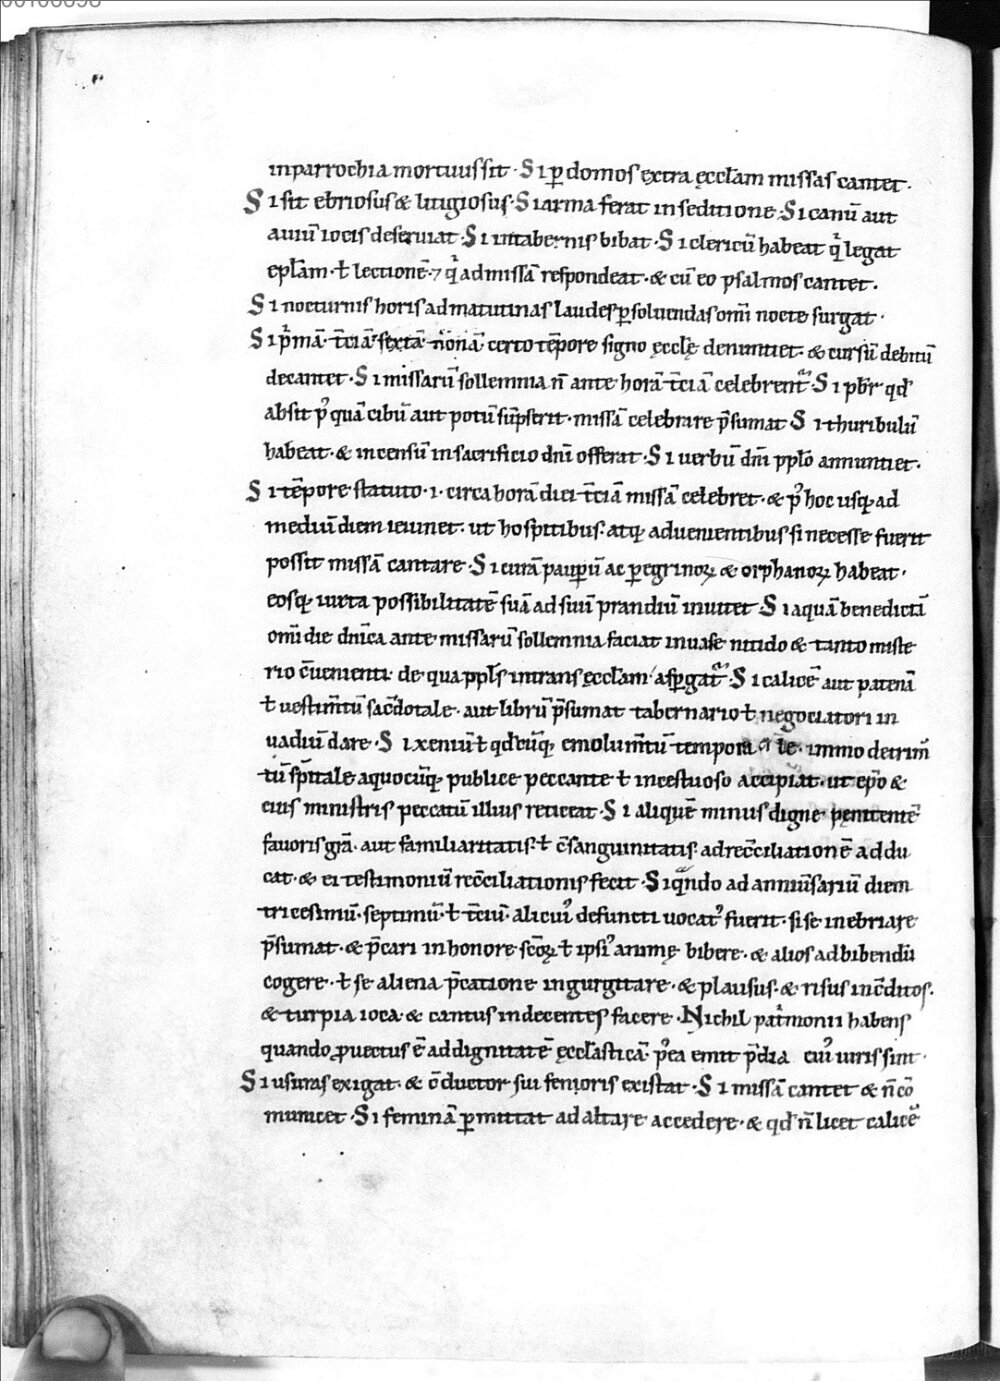 76
in parrochia mortuus sit · Si ꝑ domos extra ęcclam missas cantet ·
Si sit ebriosus & litigiosus · Si arma ferat in seditione · Si canū aut
auiū iocis deseruiat · Si in tabernis bibat · Si clericū habeat qͥ legat
eplam · ł lectionē · ⁊ qͥ ad missā respondeat · & cū eo psalmos cantet ·
Si nocturnis horis ad matutinas laudes ꝑsoluendas om̄i nocte surgat ·
Si pͥmā · t̄ciā · sextā · nonā · certo tēpore signo ęcclę denuntiet · & cursū debitū
decantet · Si missarū sollemnia n̄ ante horā t̄ciā celebrent᷑ · Si pbr qđ
absit pꝰ quā cibū aut potū sūpserit · missā celebrare p̄sumat · Si thuribulū
habeat · & incensū in sacrificio dn̄i offerat · Si uerbū dn̄i pplo annuntiet ·
Si tēpore statuto · i · circa horā diei t̄ciā missā celebret · & pꝰ hoc usq; ad
mediū diem ieiunet · ut hospitibus · atq; aduenientibus si necesse fuerit
possit missā cantare · Si curā pauꝑū ac ꝑegrinoꝝ & orphanoꝝ habeat ·
eosq; iuxta possibilitatē suā ad suū prandiū inuitet · Si aquā benedictā
om̄i die dn̄ica ante missarū sollemnia faciat in uase nitido & tanto miste
rio c̄uenienti · de qua ppls intrans ęcclam aspergat᷑ · Si calicē aut patenā
ł uestim̄tū sac̄dotale · aut librū p̄sumat tabernario ł negociatori in
uadiū dare · Si xeniū ł qđcūq; emolum̄tū tempora le · immo detrim̄
tū sp̄itale a quocūq; publice peccante ł incestuoso accipiat · ut ep̄o &
eius ministris peccatū illius reticeat · Si aliquē minus digne pęnitentē
fauoris gr̄a · aut familiaritatis · ł c̄sanguinitatis · ad rec̄ciliationē addu
cat · & ei testimoniū rec̄ciliationis fecit · Si qᵃndo ad anniūsariū diem
tricesimū · septimū · ł t̄ciū · alicuiꝰ defuncti uocatꝰ fuerit · si se inebriare
p̄sumat · & p̄cari in honore sc̄oꝝ ł ipsiꝰ animę bibere · & alios ad bibendū
cogere · ł se aliena p̄catione ingurgitare · & plausus · & risus inc̄ditos ·
& turpia ioca · & cantus indecentes facere · Nichil patͥmonii habens
quando ꝓuectus ē ad dignitatē ęcclasticā · pꝰea emit p̄dia cuiꝰ iuris sint ·
Si usuras exigat · & c̄ductor sui fenioris existat · Si missā cantet & n̄ cō
municet · Si feminā ꝑmittat ad altare accedere · & qđ n̄ licet calicē